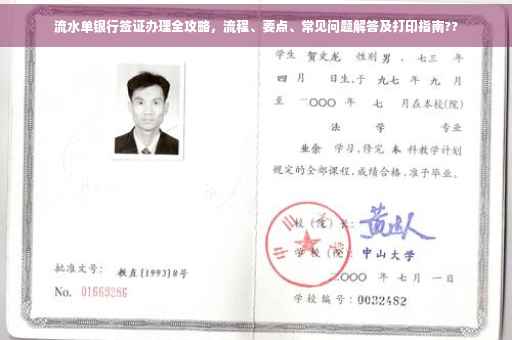 流水单银行签证办理全攻略，流程、要点、常见问题解答及打印指南??
学生 贺文龙 性别 男 、七三 年
四 月 日生，于 九七 年 九 月
至 二〇〇〇 年 七 月在本校(院)
法 学 专业
业余 学习，修完 本 科教学计划
规定的全部课程，成绩合格，准予毕业。
校（院）长：
学 校（院）： 中山大学
二〇〇〇 年 七 月 一 日
学校编号：0032482
批准文号： 教直(1993)8号
No. 01669286